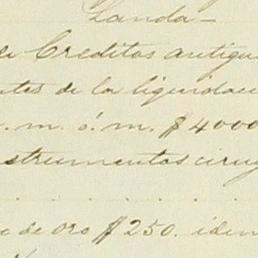 Landa -
de Creditos antigu
tes de la liquidac
m. ó. m. $ 4000
strumentos cirug
o de oro $ 250. idem